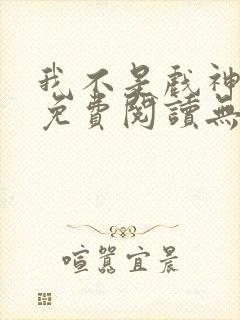 我不是戏神
免費閱讀無
喧囂宜晨